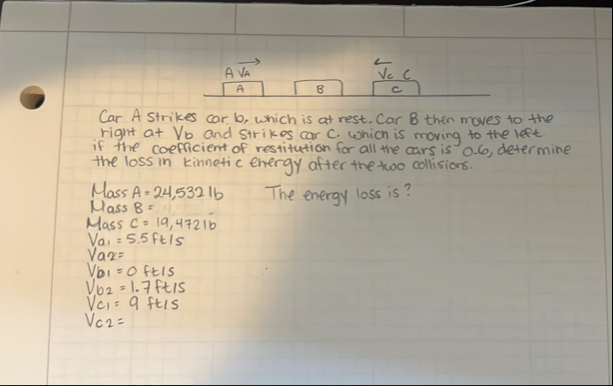 A VA VC C
A B C
Car A strikes car b, which is at rest. Car B then moves to the
right at Vb and strikes car C. which is moving to the left
if the coefficient of restitution for all the cars is 0.6, determine
the loss in kinnetic energy after the two collisions.
Mass A = 24,532 lb The energy loss is?
Mass B =
Mass C = 19,472 lb
Va1 = 5.5 ft/s
Va2=
Vb1 = 0 ft/s
Vb2 = 1.7 ft/s
Vc1 = 9 ft/s
Vc2 =